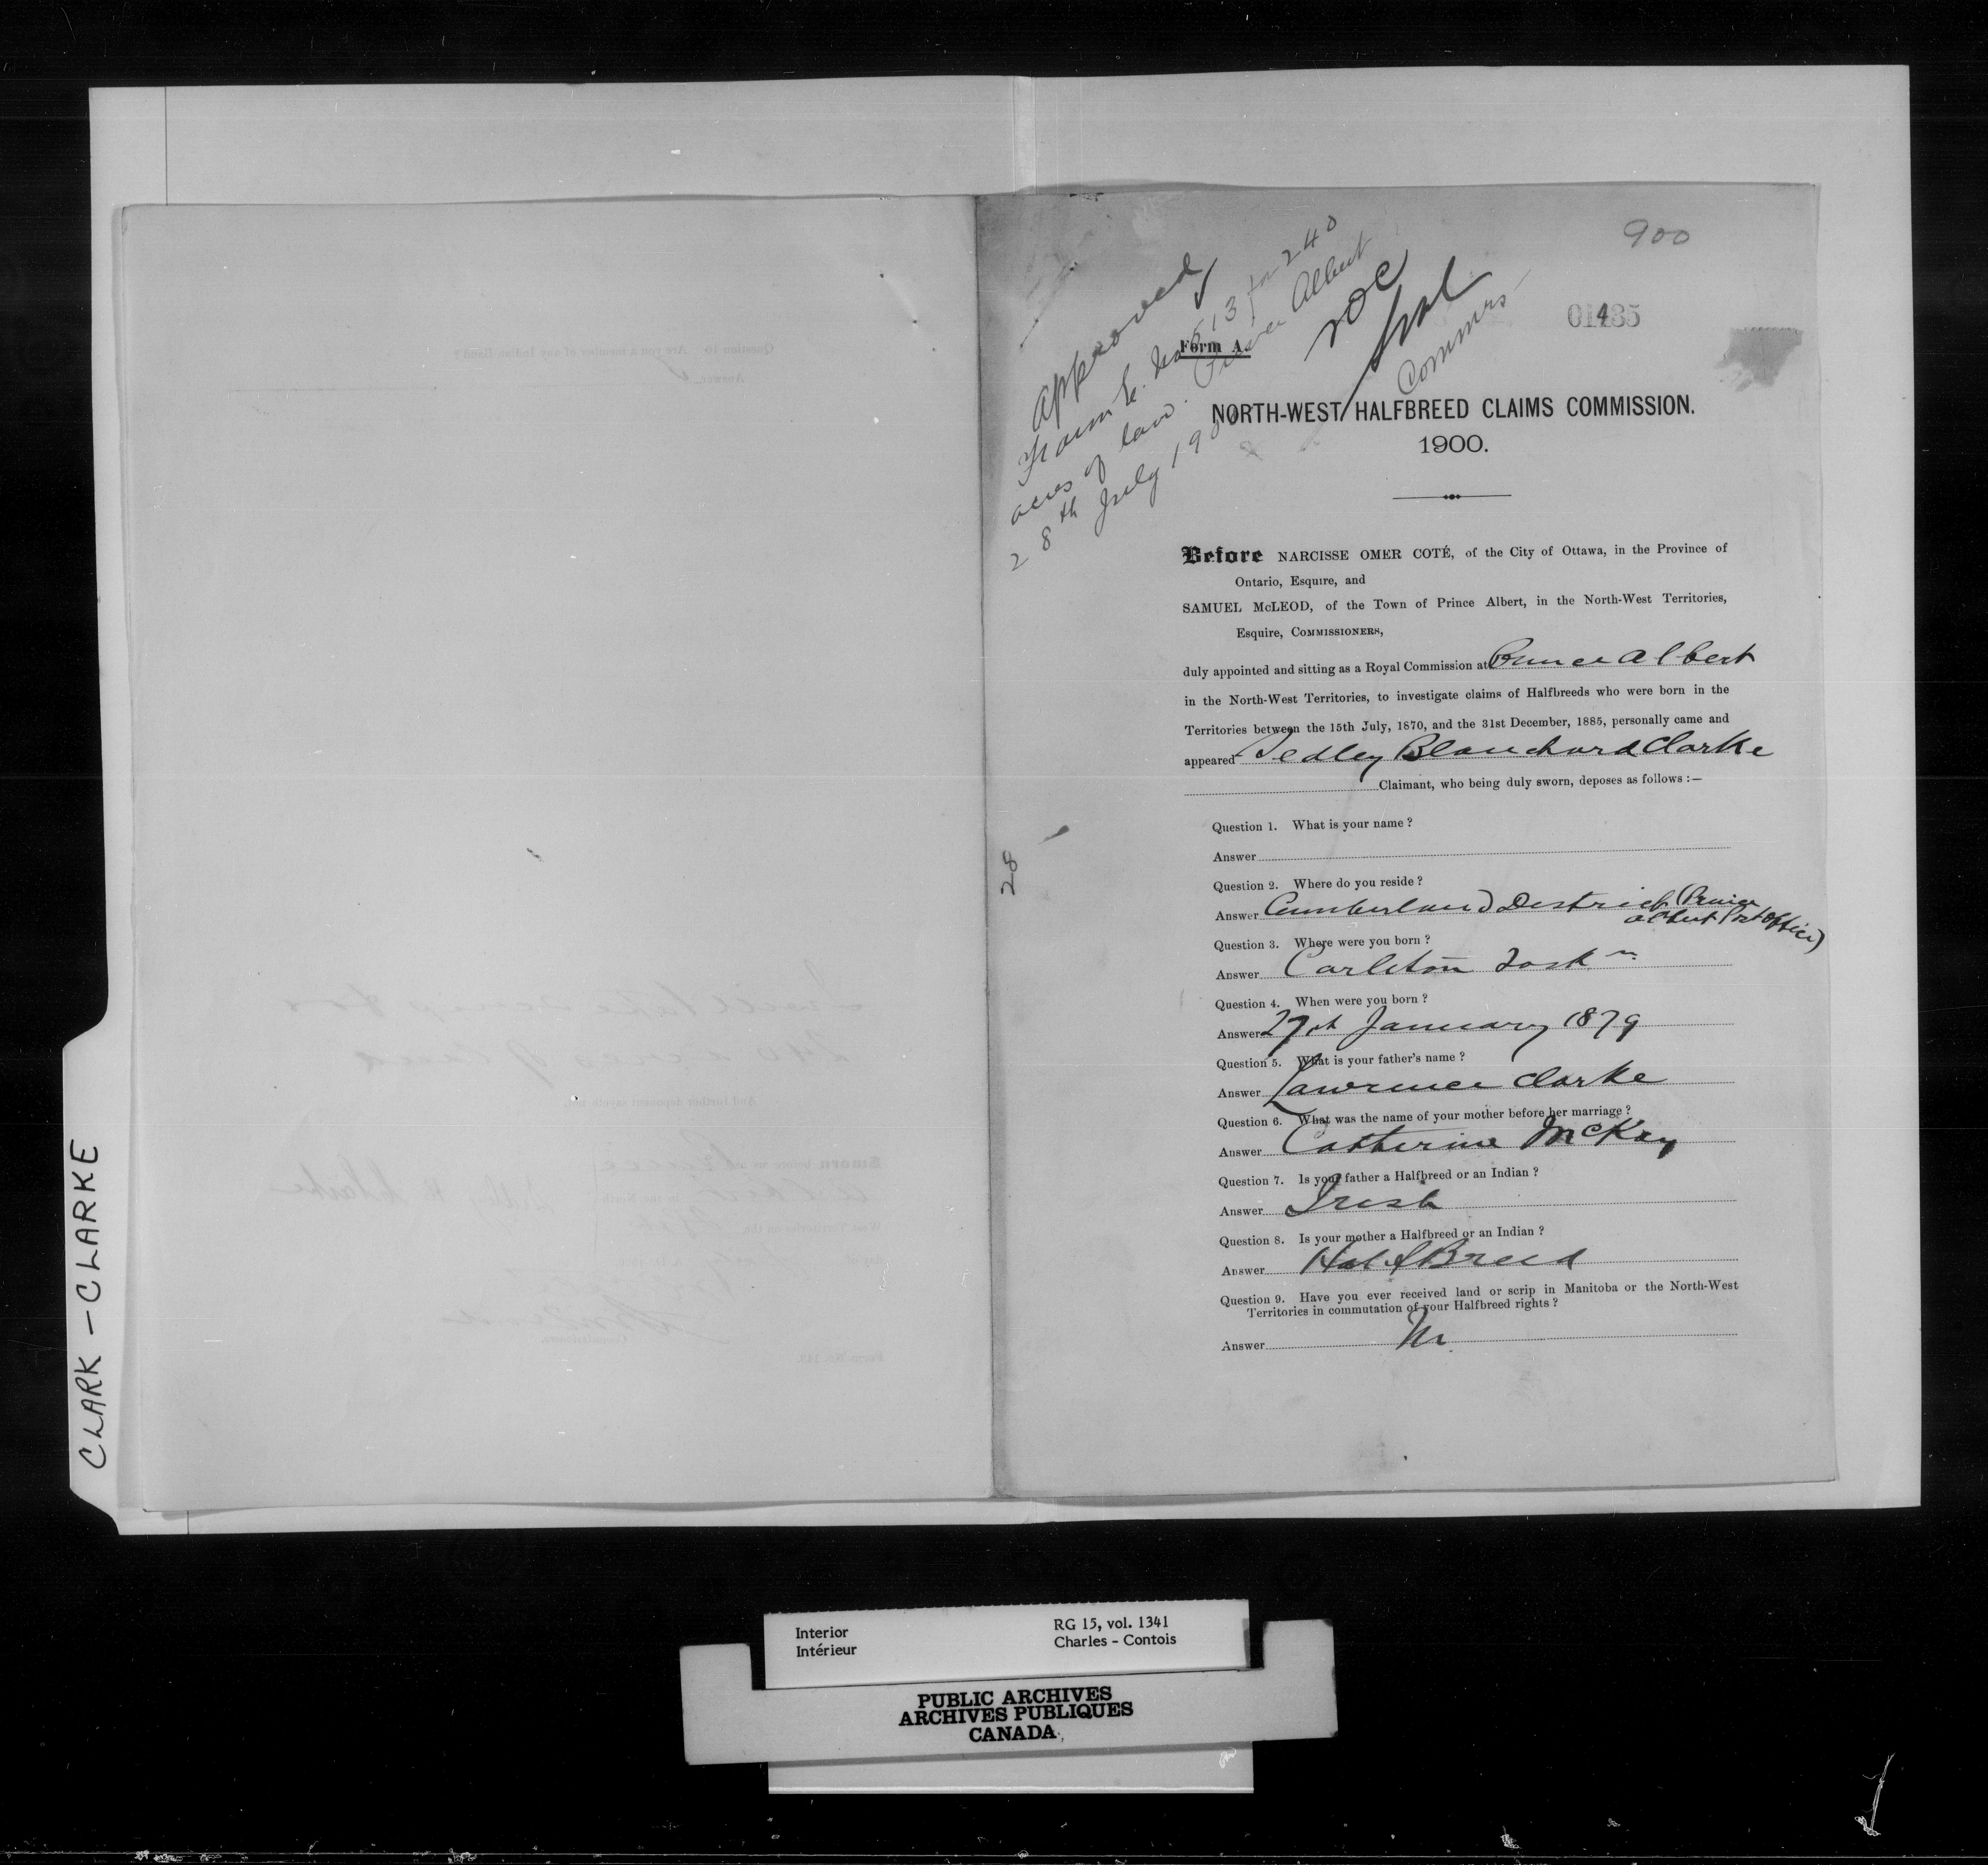 900
01435
Approved
Form E. No 513 for 240
acres of land. Prince Albert
28th July 1900
NOC
Commrs
Form A.
NORTH-WEST HALFBREED CLAIMS COMMISSION.
1900.
Before NARCISSE OMER COTÉ, of the City of Ottawa, in the Province of
Ontario, Esquire, and
SAMUEL McLEOD, of the Town of Prince Albert, in the North-West Territories,
Esquire, COMMISSIONERS,
duly appointed and sitting as a Royal Commission at Prince Albert
in the North-West Territories, to investigate claims of Halfbreeds who were born in the
Territories between the 15th July, 1870, and the 31st December, 1885, personally came and
appeared Sedley Blanchard Clarke
Claimant, who being duly sworn, deposes as follows :—
28
Question 1. What is your name ?
Answer
Question 2. Where do you reside ?
Answer Cumberland District (Prince
Albert Post Office)
Question 3. Where were you born ?
Answer Carleton Sask n.
Question 4. When were you born ?
Answer 27th January 1879
Question 5. What is your father's name ?
Answer Lawrence Clarke
Question 6. What was the name of your mother before her marriage ?
Answer Catherine McKay
Question 7. Is your father a Halfbreed or an Indian ?
Answer Irish
Question 8. Is your mother a Halfbreed or an Indian ?
Answer Half Breed
Question 9. Have you ever received land or scrip in Manitoba or the North-West
Territories in commutation of your Halfbreed rights ?
Answer No
CLARK – CLARKE
Interior
Intérieur
RG 15, vol. 1341
Charles - Contois
PUBLIC ARCHIVES
ARCHIVES PUBLIQUES
CANADA